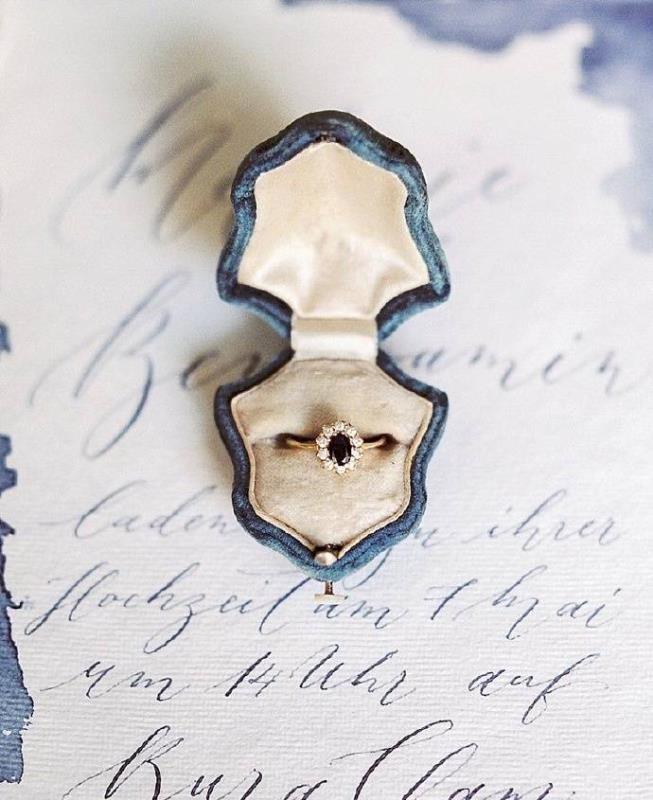 Benjamin
laden zu ihrer
Hochzeit am 7 Mai
um 14 Uhr auf
Burg Clam